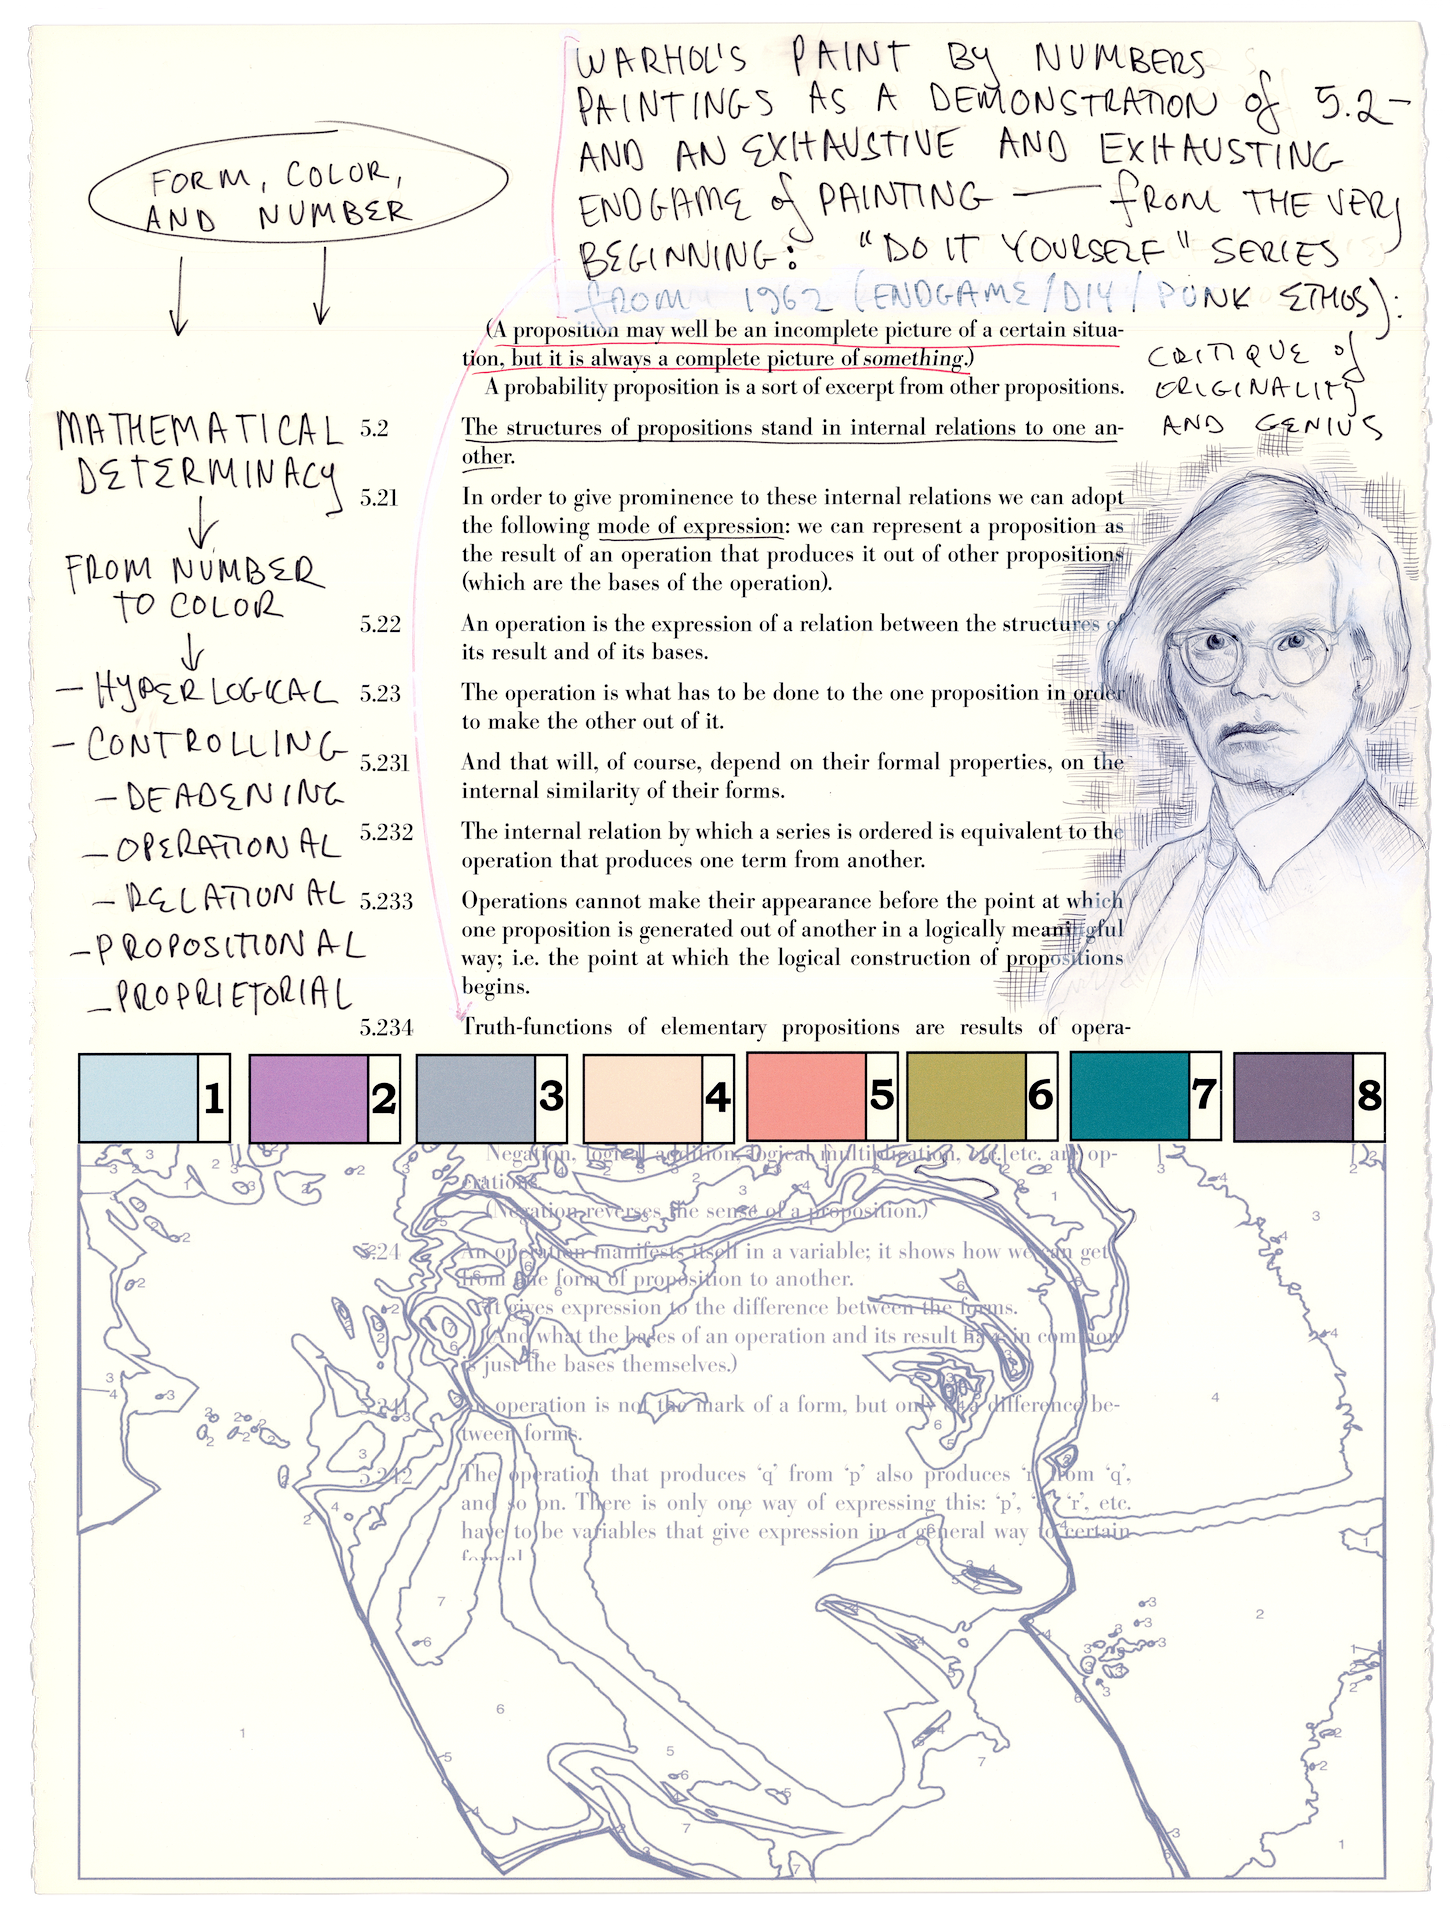 WARHOL'S PAINT BY NUMBERS
PAINTINGS AS A DEMONSTRATION of 5.2—
AND AN EXHAUSTIVE AND EXHAUSTING
ENDGAME of PAINTING — fROM THE VERY
BEGINNING: "DO IT YOURSELF" SERIES
fROM 1962 (ENDGAME/DIY/PUNK ETHOS):
CRITIQUE of
ORIGINALITY
AND GENIUS
FORM, COLOR,
AND NUMBER
MATHEMATICAL
DETERMINACY
FROM NUMBER
TO COLOR
– HYPERLOGICAL
– CONTROLLING
– DEADENING
– OPERATIONAL
– RELATIONAL
– PROPOSITIONAL
– PROPRIETORIAL
(A proposition may well be an incomplete picture of a certain situa-
tion, but it is always a complete picture of something.)
A probability proposition is a sort of excerpt from other propositions.
5.2 The structures of propositions stand in internal relations to one an-
other.
5.21 In order to give prominence to these internal relations we can adopt
the following mode of expression: we can represent a proposition as
the result of an operation that produces it out of other propositions
(which are the bases of the operation).
5.22 An operation is the expression of a relation between the structures of
its result and of its bases.
5.23 The operation is what has to be done to the one proposition in order
to make the other out of it.
5.231 And that will, of course, depend on their formal properties, on the
internal similarity of their forms.
5.232 The internal relation by which a series is ordered is equivalent to the
operation that produces one term from another.
5.233 Operations cannot make their appearance before the point at which
one proposition is generated out of another in a logically meaningful
way; i.e. the point at which the logical construction of propositions
begins.
5.234 Truth-functions of elementary propositions are results of opera-
1 2 3 4 5 6 7 8
Negation, logical addition, logical multiplication, etc. etc. are op-
erations.
(Negation reverses the sense of a proposition.)
5.24 An operation manifests itself in a variable; it shows how we can get
from one form of proposition to another.
It gives expression to the difference between the forms.
(And what the bases of an operation and its result have in common
is just the bases themselves.)
5.241 An operation is not the mark of a form, but only of a difference be-
tween forms.
5.242 The operation that produces 'q' from 'p' also produces 'r' from 'q',
and so on. There is only one way of expressing this: 'p', 'q', 'r', etc.
have to be variables that give expression in a general way to certain